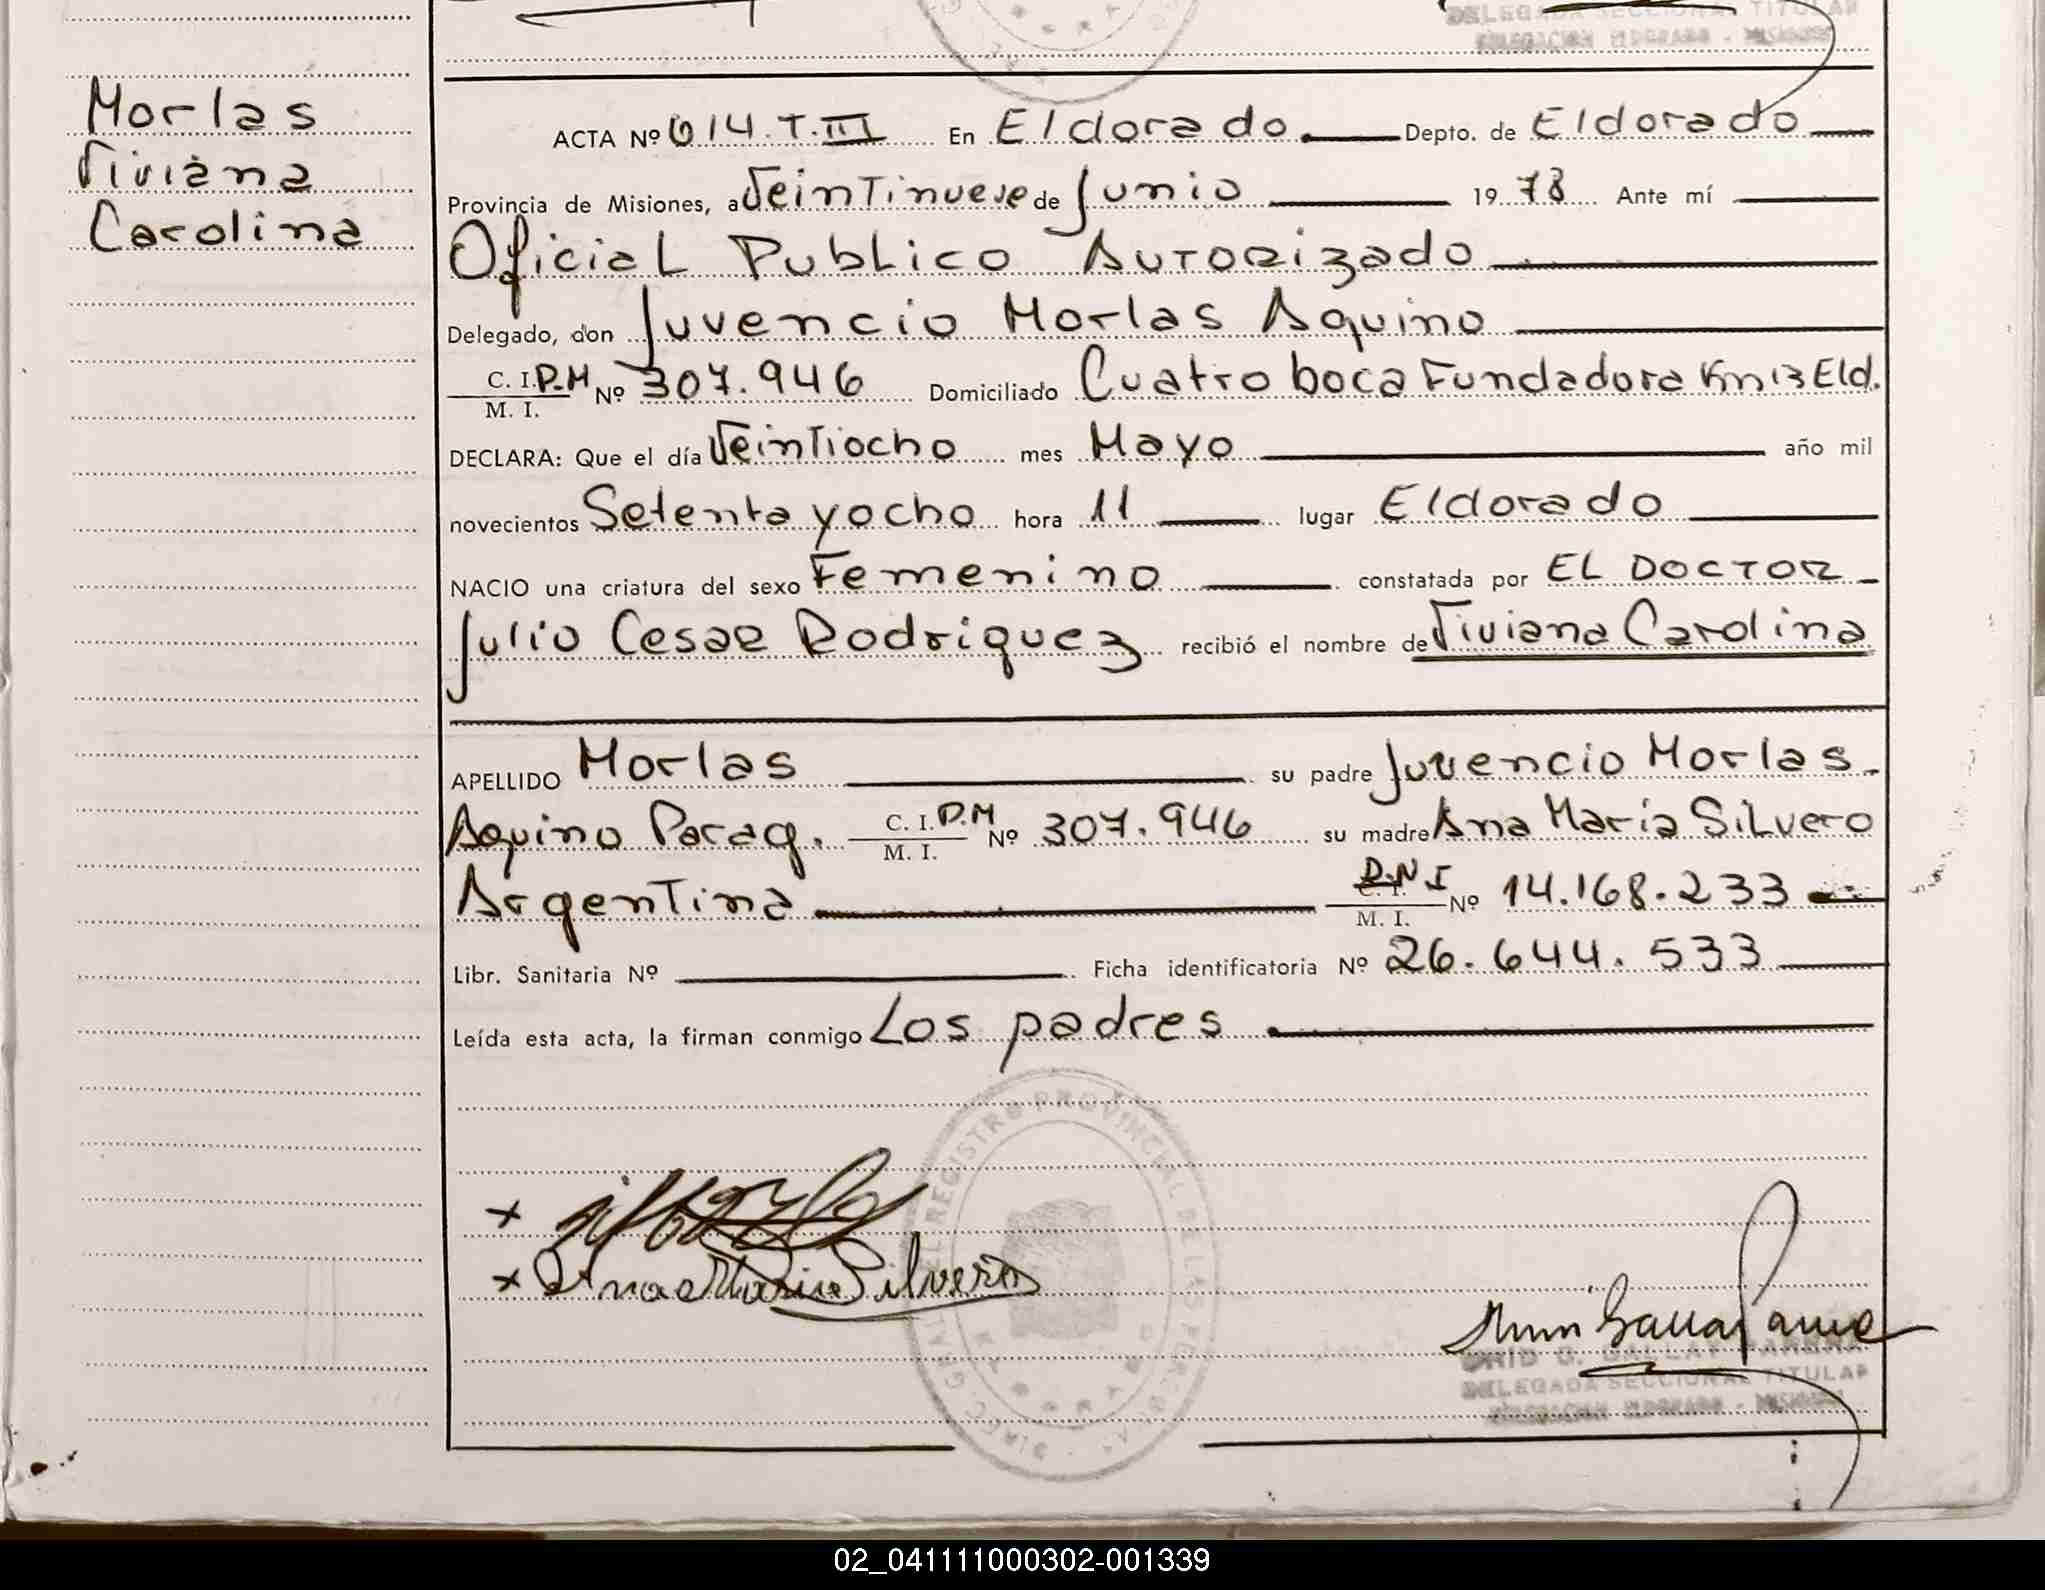 DELEGADA SECCIONAL TITULAR
DELEGACION ELDORADO - MISIONES
Morlas
Viviana
Carolina
ACTA Nº 014.T.III En Eldorado Depto. de Eldorado
Provincia de Misiones, a Veintinueve de Junio 19 78 Ante mí
Oficial Publico Autorizado
Delegado, don Juvencio Morlas Aquino
C. I. P.M Nº 307.946 Domiciliado Cuatro boca Fundadora Km 13 Eld.
M. I.
DECLARA: Que el día Veintiocho mes Mayo año mil
novecientos Setenta y ocho hora 11 lugar Eldorado
NACIO una criatura del sexo Femenino constatada por EL DOCTOR
Julio Cesar Rodriquez recibió el nombre de Viviana Carolina
APELLIDO Morlas su padre Juvencio Morlas
Aquino Parag. C. I. P.M Nº 307.946 su madre Ana Maria Silvero
M. I.
Argentina D.N.I Nº 14.168.233
M. I.
Libr. Sanitaria Nº Ficha identificatoria Nº 26.644.533
Leída esta acta, la firman conmigo Los padres
REGISTRO PROVINCIAL DE LAS PERSONAS
x
x Ana Maria Silvero
G. GALLAY
DELEGADA SECCIONAL TITULAR
DELEGACION ELDORADO - MISIONES
02_041111000302-001339